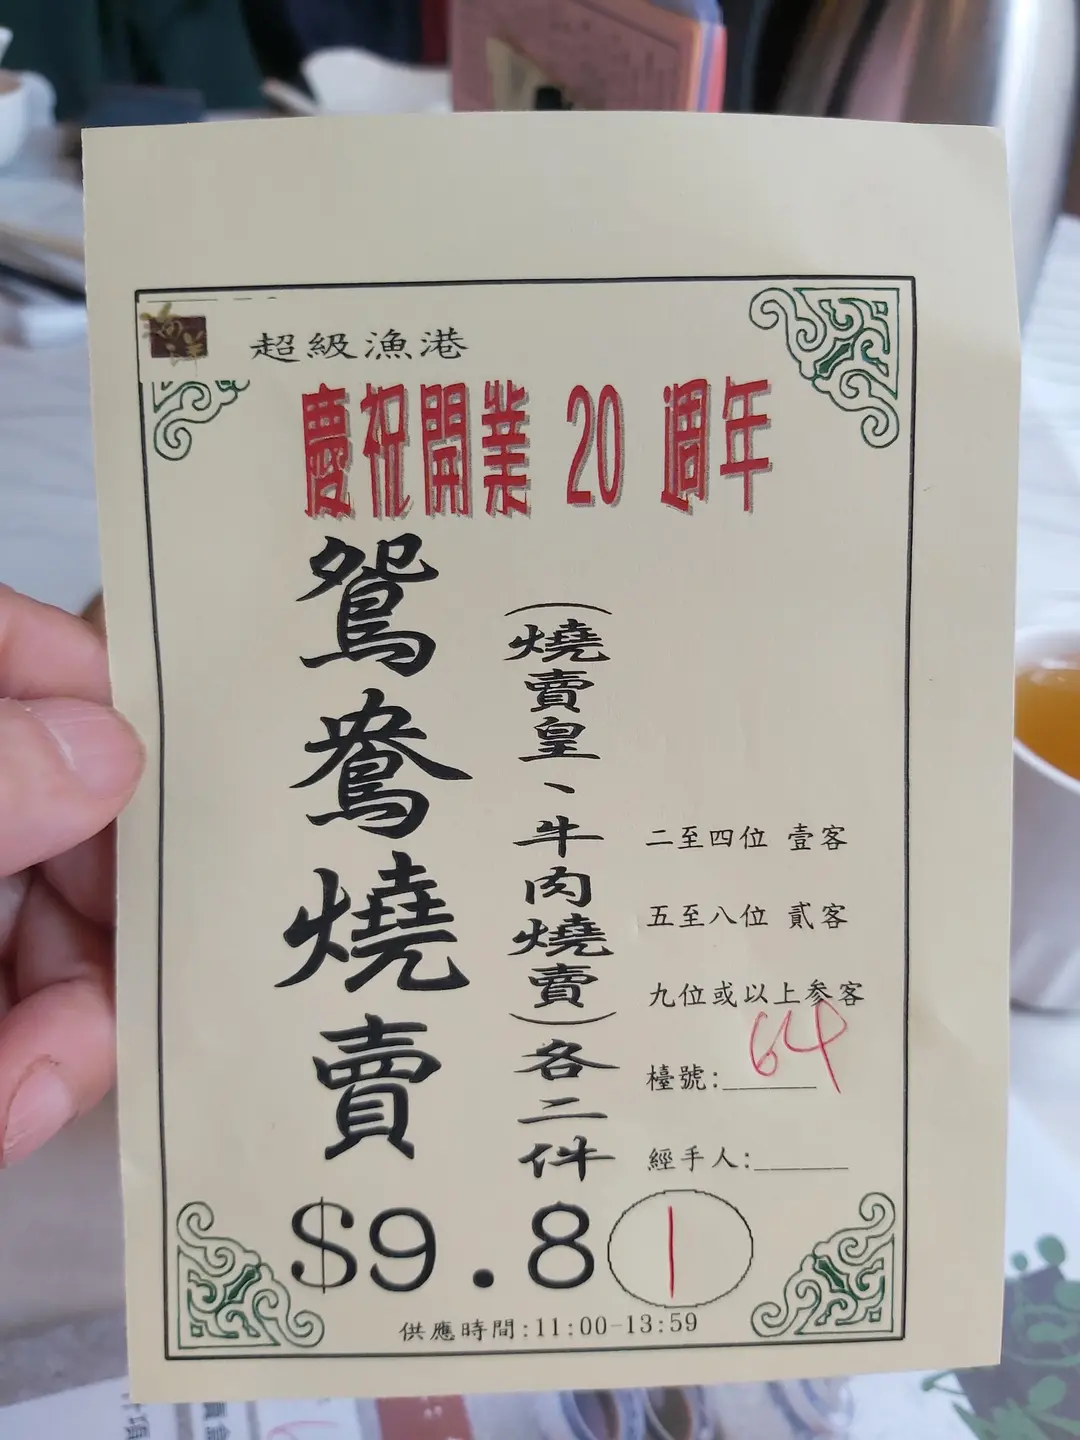 超級漁港
慶祝開業 20 週年
鴛鴦燒賣
(燒賣皇、牛肉燒賣)各二件
二至四位 壹客
五至八位 貳客
九位或以上參客
檯號:64
經手人:______
$9.8
1
供應時間:11:00-13:59